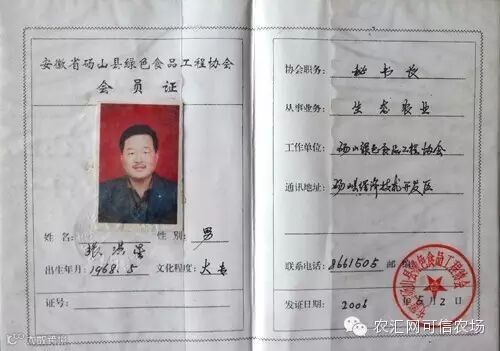 安徽省砀山县绿色食品工程协会
会员证
姓名: 张洪
性别: 男
出生年月: 1968.5 文化程度: 大专
证号:
协会职务: 秘书长
从事业务: 生态农业
工作单位: 砀山绿色食品工程协会
通讯地址: 砀山县经济技术开发区
联系电话: 8661505 邮
发证日期: 2005 年 5 月 2 日
山县绿色食品工程协会
农汇网可信农场